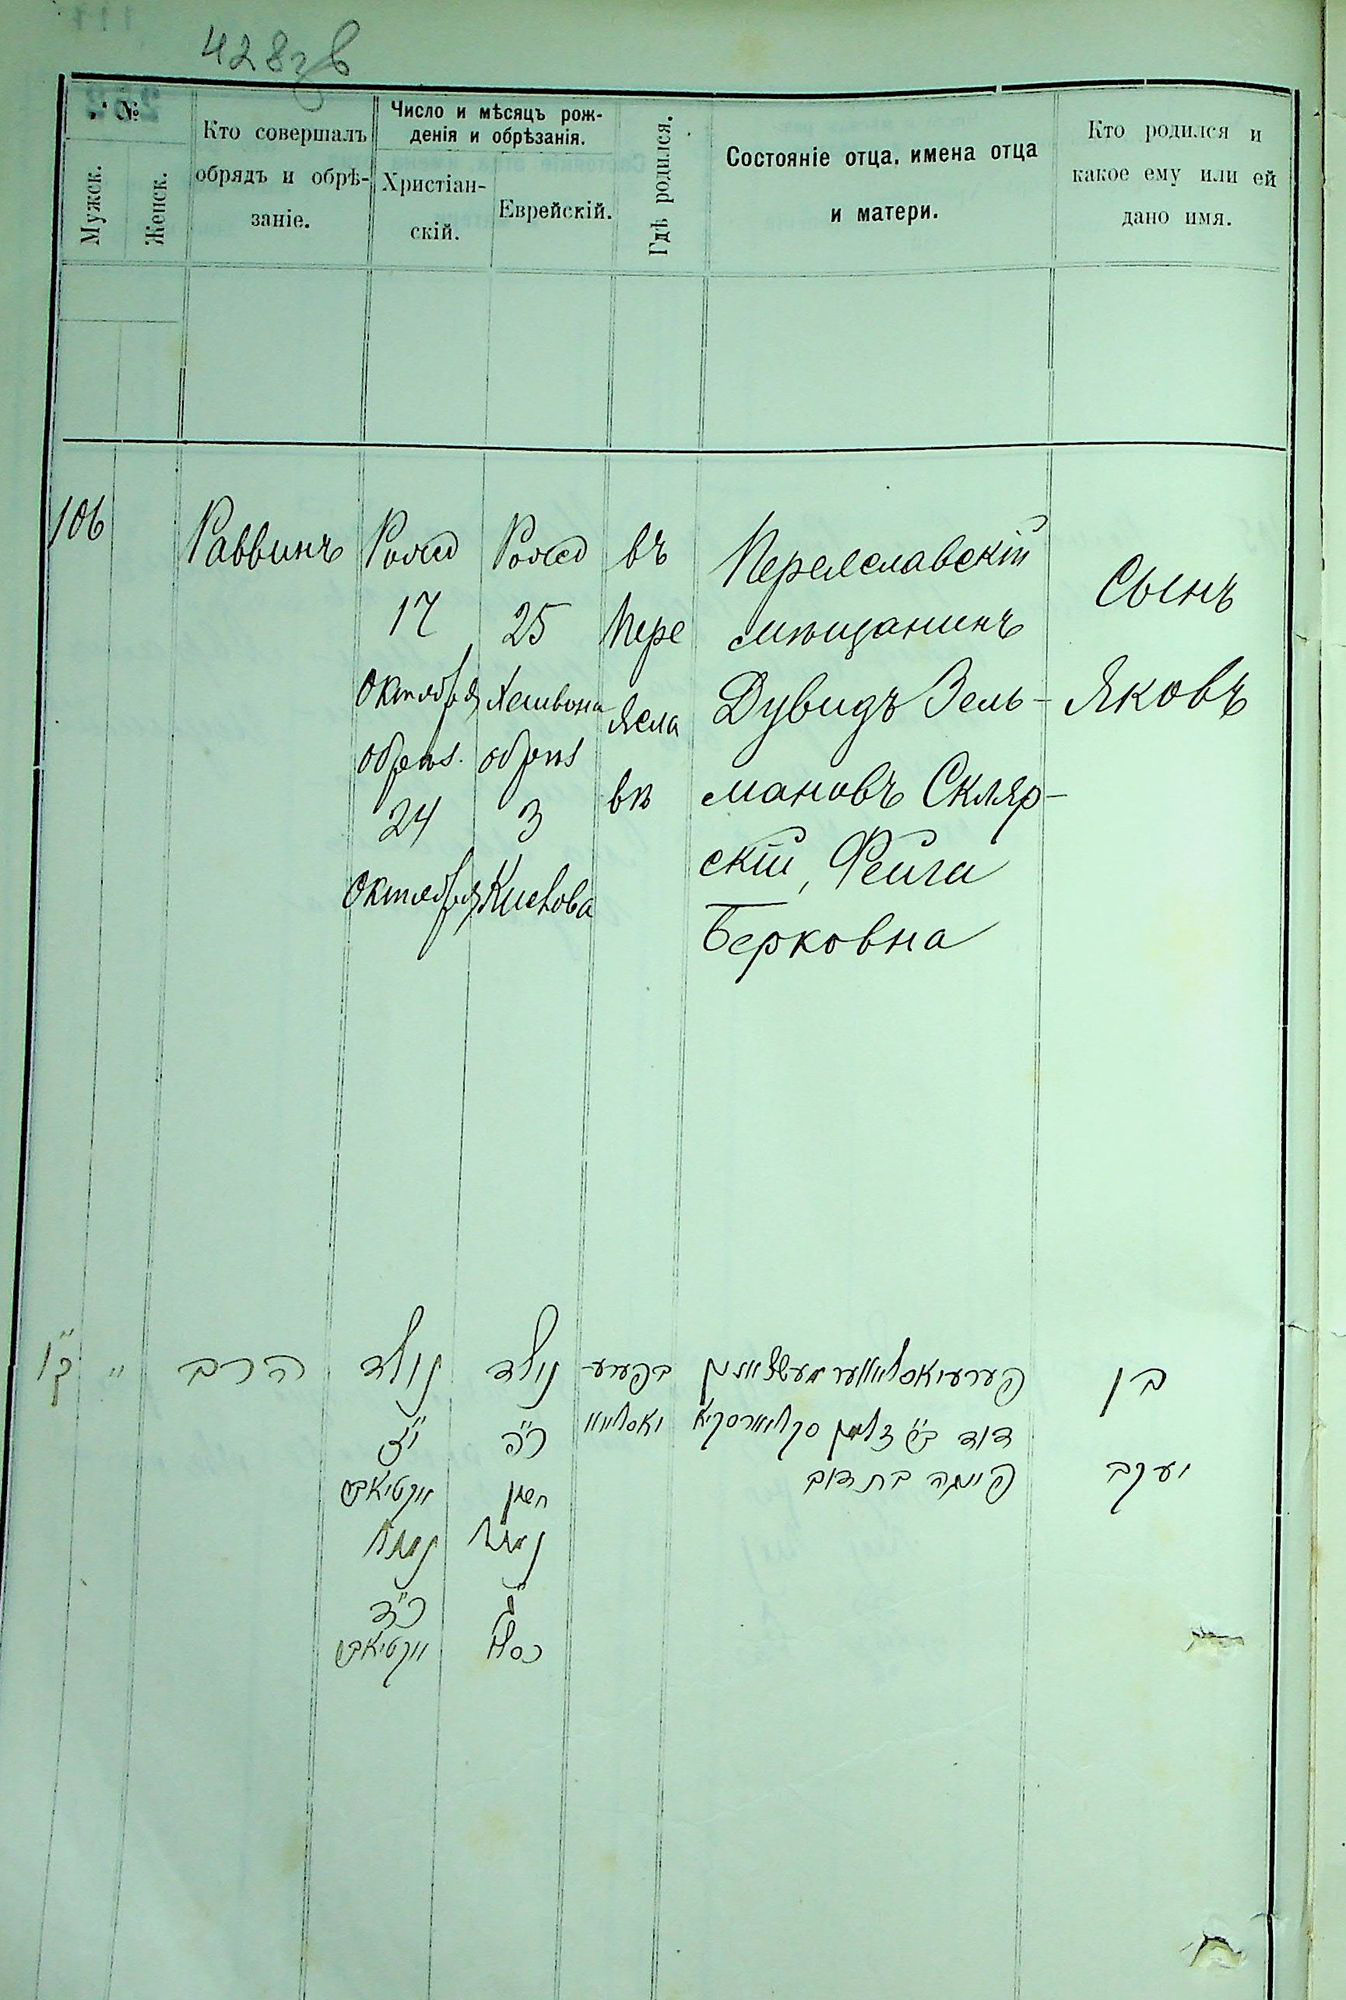 428зв
№
Мужск.
Женск.
Кто совершалъ
обрядъ и обрѣ-
заніе.
Число и мѣсяцъ рож-
денія и обрѣзанія.
Христіан-
скій.
Еврейскій.
Гдѣ родился.
Состояніе отца, имена отца
и матери.
Кто родился и
какое ему или ей
дано имя.
106
Раввинъ
Рожд
17
Октября
обрѣз.
24
Октября
Рожд
25
Хешвона
обрѣз
3
Кислова
въ
Пере
ясла
вѣ
Переяславскій
мѣщанинъ
Дувидъ Зель-
мановъ Скляр-
скій, Фейга
Берковна
Сынъ
Яковъ
ק"ו
"
הרב
נולד
י"ז
אקטיאבר
נמול
כ"ד
אקטיאבר
נולד
כ"ה
חשון
נמול
ג'
כסלו
בפערע-
יאסלאוו
דוד ב"ר זלמן סקליארסקיא
פייגה בת דוב
בן
יעקב